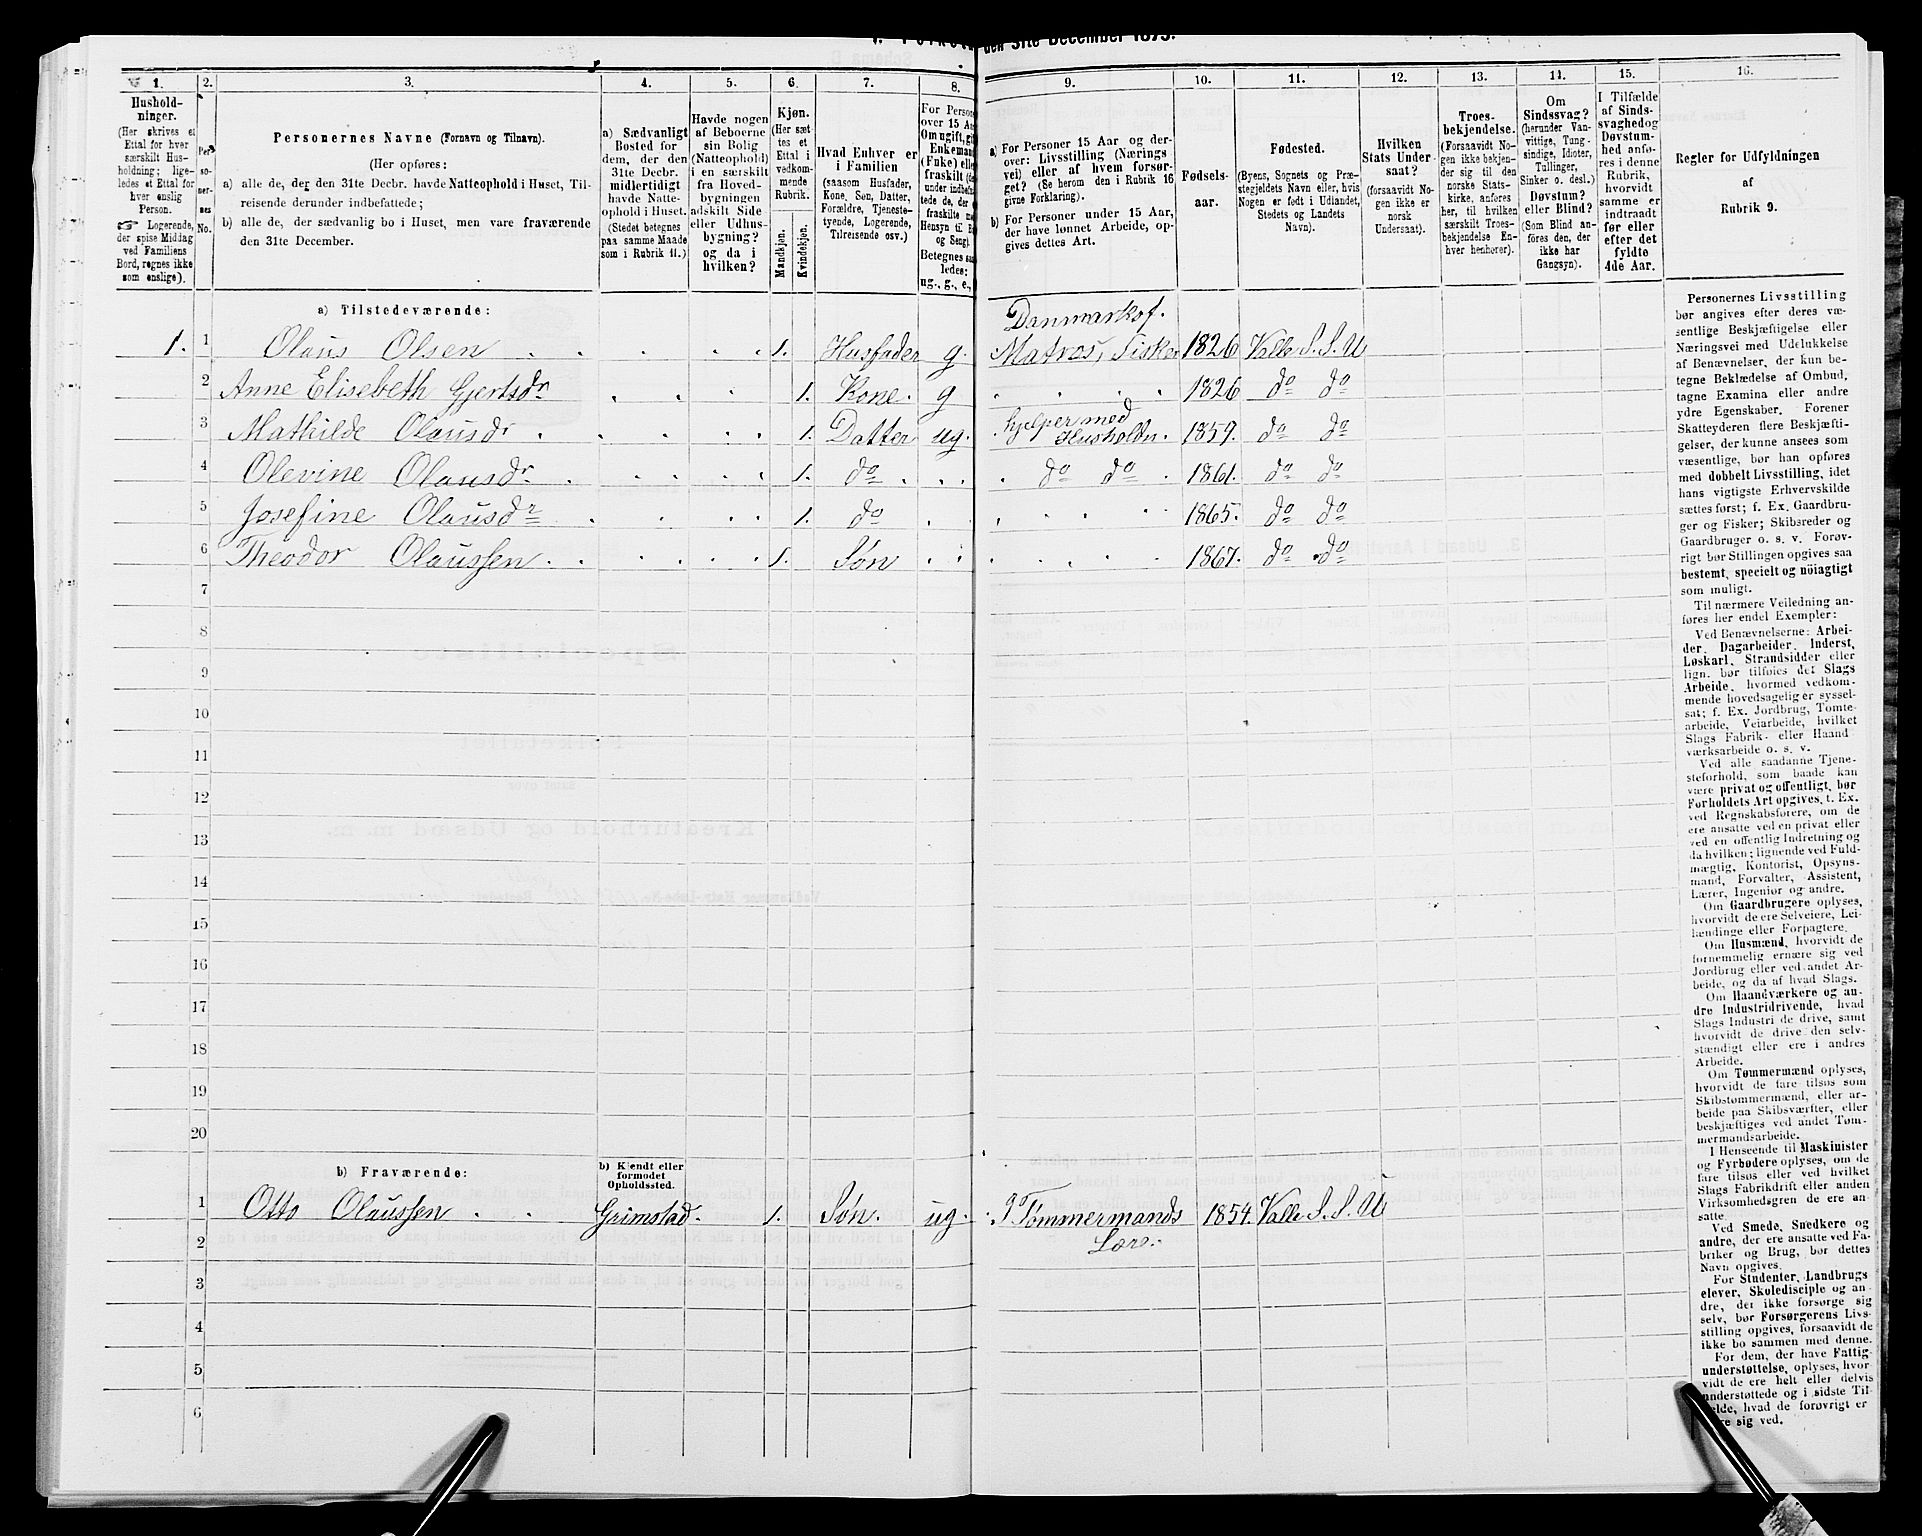 den 31te December 1875.
1.
Hushold-
ninger.
(Her skrives et
Ettal for hver
særskilt Hus-
holdning; lige-
ledes et Ettal for
hver enslig
Person.
☞ Logerende,
der spise Middag
ved Familiens
Bord, regnes ikke
som enslige).
2.
Per-
so-
ner-
nes
No.
3.
Personernes Navne (Fornavn og Tilnavn).
(Her opføres:
a) alle de, der den 31te Decbr. havde Natteophold i Huset, Til-
reisende derunder indbefattede;
b) alle de, der sædvanlig bo i Huset, men vare fraværende
den 31te December.
4.
a) Sædvanligt
Bosted for
dem, der den
31te Decbr.
midlertidigt
havde Natte-
ophold i Huset.
(Stedet betegnes
paa samme Maade
som i Rubrik 11.)
5.
Havde nogen
af Beboerne
sin Bolig
(Natteophold)
i en særskilt
fra Hoved-
bygningen
adskilt Side
eller Udhus-
bygning?
og da i
hvilken?
6.
Kjøn.
(Her sæt-
tes et
Ettal i
vedkom-
mende
Rubrik.
Mandkjøn.
Kvindekjøn.
7.
Hvad Enhver er
i Familien
(saasom Husfader,
Kone, Søn, Datter,
Forældre, Tjeneste-
tyende, Logerende,
Tilreisende osv.)
8.
For Person
over 15 Aar
Om ugift, gif
Enkemand
(Enke) elle
fraskilt (de
under indbefat
tede de, der
fraskilte me
Hensyn til B
og Seng).
Betegnes saa
ledes:
ug., g., e.,
9.
a) For Personer 15 Aar og der-
over: Livsstilling (Nærings
vei) eller af hvem forsør-
get? (Se herom den i Rubrik 16
givne Forklaring).
b) For Personer under 15 Aar,
der have lønnet Arbeide, op-
gives dettes Art.
10.
Fødsels-
aar.
11.
Fødested.
(Byens, Sognets og Præ-
stegjeldets Navn eller, hvis
Nogen er født i Udlandet,
Stedets og Landets
Navn).
12.
Hvilken
Stats Under-
saat?
(forsaavidt No-
gen ikke er
norsk
Undersaat).
13.
Troes-
bekjendelse.
(Forsaavidt No-
gen ikke bekjen-
der sig til den
norske Stats-
kirke, anføres
her, til hvilken
særskilt Troes-
bekjendelse En-
hver henhører).
14.
Om
Sindssvag?
(herunder Van-
vittige, Tung-
sindige, Idioter,
Tullinger,
Sinker o. desl.)
Døvstum?
eller Blind?
(Som Blind an-
føres den, der
ikke har
Gangsyn).
15.
I Tilfælde
af Sinds-
svaghed og
Døvstum-
hed anfø-
res i denne
Rubrik,
hvorvidt
samme er
indtraadt
før eller
efter det
fyldte
4de Aar.
16.
Regler for Udfyldningen
af
Rubrik 9.
a) Tilstedeværende:
Danmarksf.
1. 1 Olaus Olsen 1. Husfader g. Matros, Fisker 1826 Valle S. S. U
2 Anne Elisebeth Gjertsdr 1. Kone. g 1826 do do
3 Mathilde Olausdr 1. Datter ug. hjelper med Husholdn. 1859. do do
4 Olevine Olausdr 1. do do do 1861. do do
5 Josefine Olausdr 1. do 1865. do do
6 Theodor Olaussen 1. Søn 1867. do do
7
8
9
10
11
12
13
14
15
16
17
18
19
20
b) Fraværende:
b) Kjendt eller
formodet
Opholdssted.
1 Otto Olaussen Grimstad. 1. Søn. ug. I Tømmermands 1854. Valle S. S. U
Lære.
2
3
4
5
6
Personernes Livsstilling
bør angives efter deres væ-
sentlige Beskjæftigelse eller
Næringsvei med Udelukkelse
af Benævnelser, der kun be-
tegne Beklædelse af Ombud,
tagne Examina eller andre
ydre Egenskaber. Forener
Skatteyderen flere Beskjæfti-
gelser, der kunne ansees som
væsentlige, bør han opføres
med dobbelt Livsstilling, idet
hans vigtigste Erhvervskilde
sættes først; f. Ex. Gaardbru-
ger og Fisker; Skibsreder og
Gaardbruger o. s. v. Forøv-
rigt bør Stillingen opgives saa
bestemt, specielt og nöiagtigt
som muligt.
Til nærmere Veiledning an-
føres her endel Exempler:
Ved Benævnelserne: Arbei-
der, Dagarbeider, Inderst,
Løskarl, Strandsidder eller
lign. bør tilføies det Slags
Arbeide, hvormed vedkom-
mende hovedsagelig er syssel-
sat; f. Ex. Jordbrug, Tomte-
arbeide, Veiarbeide, hvilket
Slags Fabrik- eller Haand
værksarbeide o. s. v.
Ved alle saadanne Tjene-
steforhold, som baade kan
være privat og offentligt, bør
Forholdets Art opgives, t. Ex.
ved Regnskabsførere, om de
ere ansatte ved en privat eller
ved en offentlig Indretning og
da hvilken; lignende ved Fuld-
mægtig, Kontorist, Opsyns-
mand, Forvalter, Assistent,
Lærer, Ingeniør og andre.
Om Gaardbrugere oplyses,
hvorvidt de ere Selveiere, Lei-
lændinge eller Forpagtere.
Om Husmænd, hvorvidt de
fornemmelig ernære sig ved
Jordbrug eller ved andet Ar-
beide, og da af hvad Slags.
Om Haandværkere og an-
dre Industridrivende, hvad
Slags Industri de drive, samt
hvorvidt de drive den selv-
stændigt eller ere i andres
Arbeide.
Om Tømmermænd oplyses,
hvorvidt de fare tilsøs som
Skibstømmermænd, eller ar-
beide paa Skibsværfter, eller
beskjæftiges ved andet Tøm-
mermandsarbeide.
I Henseende til Maskinister
og Fyrbødere oplyses, om de
fare tilsøs eller ved hvilket
Slags Fabrikdrift eller anden
Virksomhedsgren de ere an-
satte.
Ved Smede, Snedkere og
andre, der ere ansatte ved Fa-
briker og Brug, bør dettes
Navn opgives.
For Studenter, Landbrugs
elever, Skoledisciple og an-
dre, der ikke forsørge sig
selv, bør Forsørgerens Livs-
stilling opgives, forsaavidt de
ikke bo sammen med denne.
For dem, der have Fattig
understøttelse, oplyses, hvor-
vidt de ere helt eller delvis
understøttede og i sidste Til-
fælde, hvad de forøvrigt er
nære sig ved.